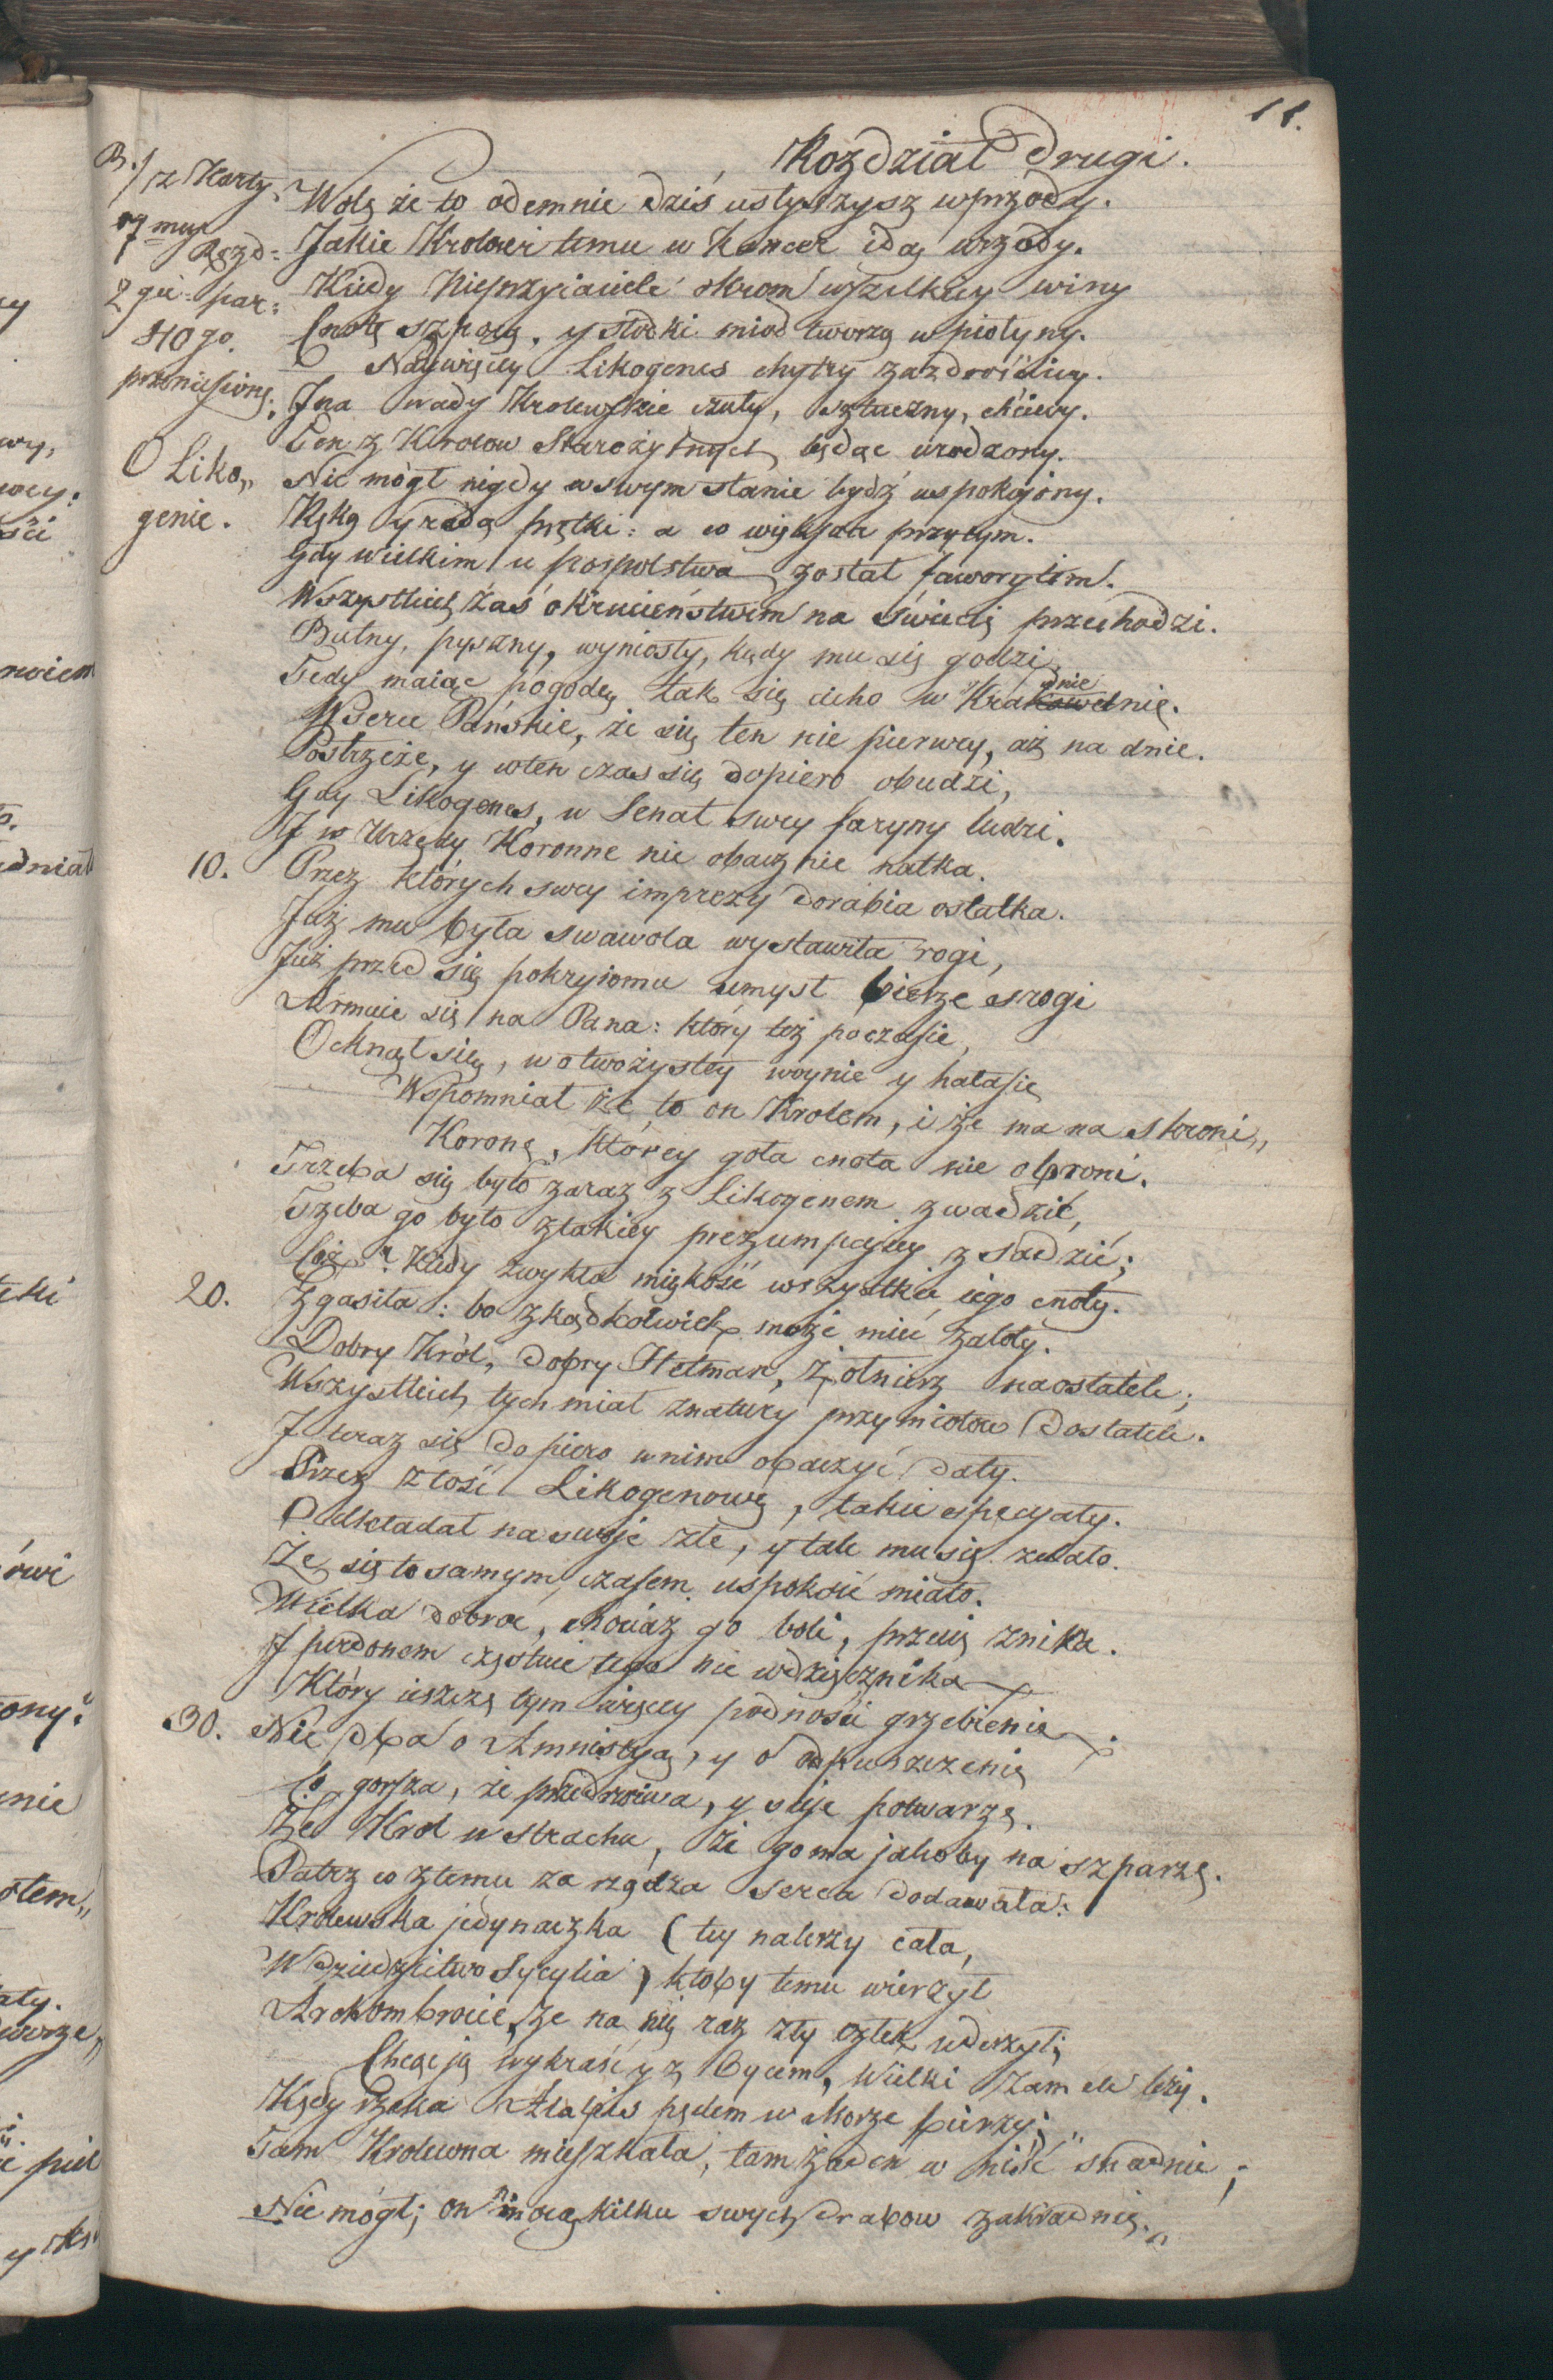 11.
Rozdział Drugi.
B./ z Karty
07 mey
Rozd:
2 gie par:
40 go.
przeniesione.
Wolę że to odemnie dziś usłyszysz wprzody.
Jakie Krolowi temu w koncer idą urzędy.
Kiedy Nieprzyiaciele okrom wszelkiey winy
Cnotę szpocą, y słodki miod tworzą w piołyny.
Naywięcey Likogenes chytry zazdrościwy.
J na wady Krolewskie czuły, sztuczny, chciwy.
Ten z Krolow Starożytnych będąc urodzony.
O Liko„
genie.
Nie mògł nigdy w swym stanie bydź uspokojony.
Ręką y radą prętki: a co większa przytym.
Gdy wielkim u pospolstwa został faworytem.
Wszystkich zaś okrucieństwem na świecie przechodzi.
Butny, pyszny, wyniosły, kędy mu się godzi
Tedy maiąc pogodę, tak się cicho wkradnie
W serce Pańskie, że się ten nie pierwey, aż na dnie.
Postrzeże, y wten czas się dopiero obudzi,
Gdy Likogenes, w Senat swey faryny ludzi.
J w Urzędy Koronne nie obacznie natka.
10. Przez których swey imprezy dorabia ostatka.
Już mu była swawola wystawiła rogi,
Już przed się pokryiomu umysł bierze srogi
Armuie się na Pana: który też poczasie,
Ocknął się, w otworzystey woynie y hałasie
Wspomniał że to on Krolem, i że ma na skroni„
Koronę, ktorey goła cnota nie obroni.
Trzeba się było zaraz z Likogenem zwadzić,
Trzeba go było ztakiey prezumpcyiey zsadzić;
Coż? kiedy zwykła miękość wszystkie iego cnoty.
20. Zgasiła: bo zkądkolwiek może mieć zaloty.
Dobry Król, dobry Hetman, Żołnierz naostatek;
Wszystkich tych miał znatury przymiotow dostatek.
J teraz się dopiero wnim obaczyć dały.
Przez złość Likogenową, takie specyały.
Odkładał na swoje złe, y tak mu się zdało.
Że się to samym czasem uspokoić miało.
Wielka dobroć, chociaż go boli, przecię znika.
J perdonem częstuie tego nie wdzięcznika
Który ieszcze tym więcey podnosi grzebienie
30. Nie dba o Amnistyą, y o odpuszczenie
Co gorsza, że przedrwiwa, y sieje potwarze.
Że Krol w strachu, że go ma jakoby na szparze.
Patrz co ztemu za rządza serca dodawała:
Krolewska jedynaczka (tey należy cała,
W dziedzictwo Sycylia) ktoby temu wierzył
Arckombrocie, że na nię raz zły człek uderzył;
Chcąc ją wykraść y z Oycem, Wielki zamek leży.
Kędy rzeka Alabis pędem w Morze bieży;
Tam Krolewna mieszkała, tam żaden w niść snadnie;
Nie mógł; on mocą kilku swych drabow zakradnie„